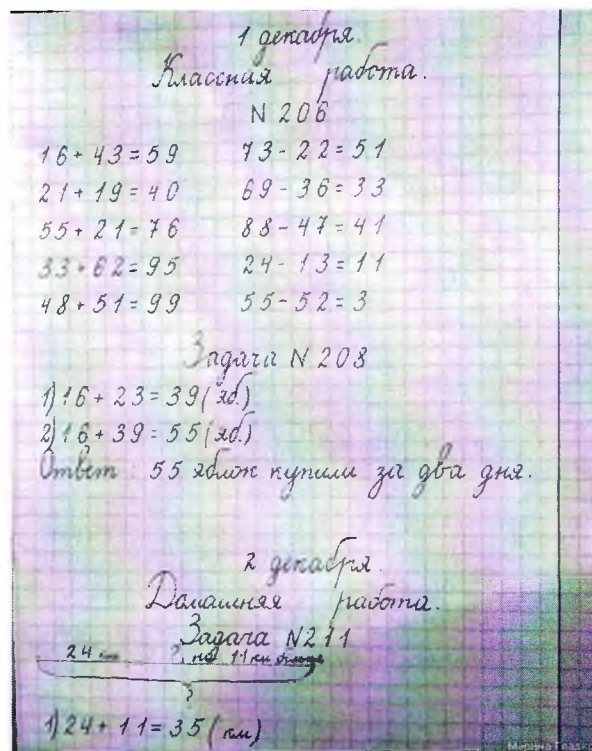 1 декабря.
Классная работа.
N 206
16 + 43 = 59 73 - 22 = 51
21 + 19 = 40 69 - 36 = 33
55 + 21 = 76 88 - 47 = 41
33 + 62 = 95 24 - 13 = 11
48 + 51 = 99 55 - 52 = 3
Задача N 208
1) 16 + 23 = 39 (яб.)
2) 16 + 39 = 55 (яб.)
Ответ: 55 яблок купили за два дня.
2 декабря.
Домашняя работа.
Задача N 211
24 км ?, на 11 км больше
?
1) 24 + 11 = 35 (км)